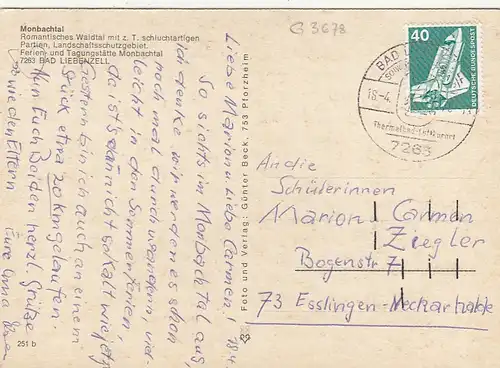 Monbachtal
Romantisches Waldtal mit z. T. schluchtartigen
Partien, Landschaftsschutzgebiet.
Ferien- und Tagungsstätte Monbachtal
7263 BAD LIEBENZELL
G 3678
40
DEUTSCHE BUNDESPOST
BAD
18.-4.
Thermalbad-Luftkurort
7263
18.4.
Liebe Marion u. Liebe Carmen!
So siehts im Monbachtal aus,
ich denke wir werden es schon
noch mal durchwandern viel-
leicht in den Sommerferien,
da ists dann nicht so kalt wie jetzt
gestern bin ich auch an einem
Stück etwa 20 km gelaufen.
Nun Euch Beiden herzl. Grüße
sowie den Eltern
Eure Oma
Foto und Verlag: Günter Beck, 753 Pforzheim
An die
Schülerinnen
Marion, Carmen
Ziegler
Bogenstr 7
73 Esslingen-Neckarhalde
251 b